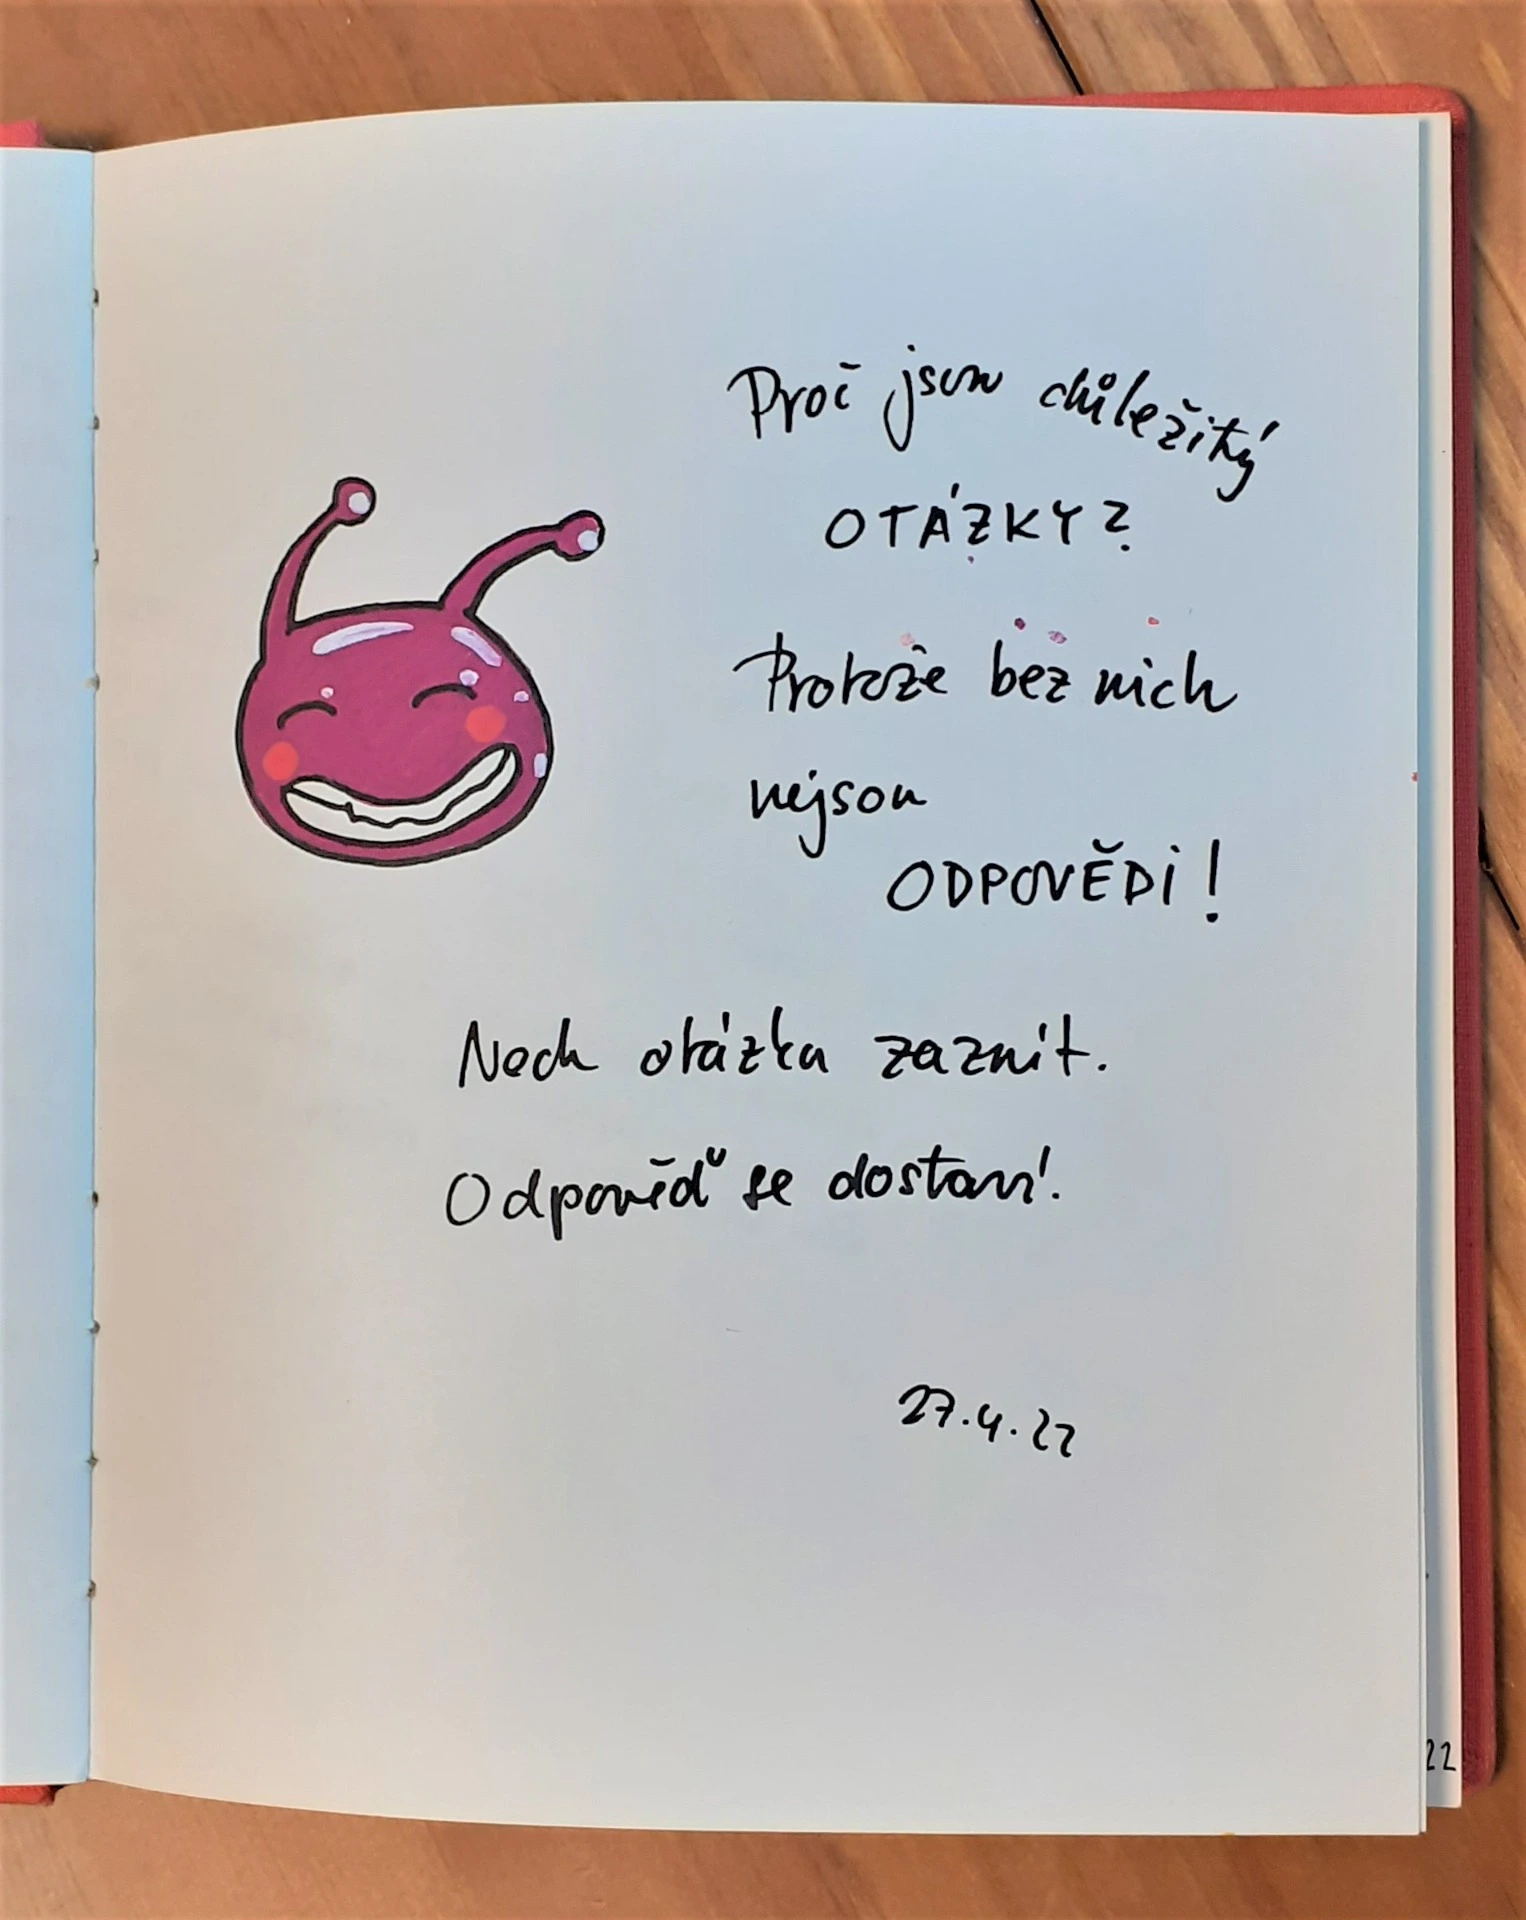 Proč jsou důležitý
OTÁZKY?
Protože bez nich
nejsou
ODPOVĚDI!
Nech otázku zaznít.
Odpověď se dostaví.
27.4.22
22